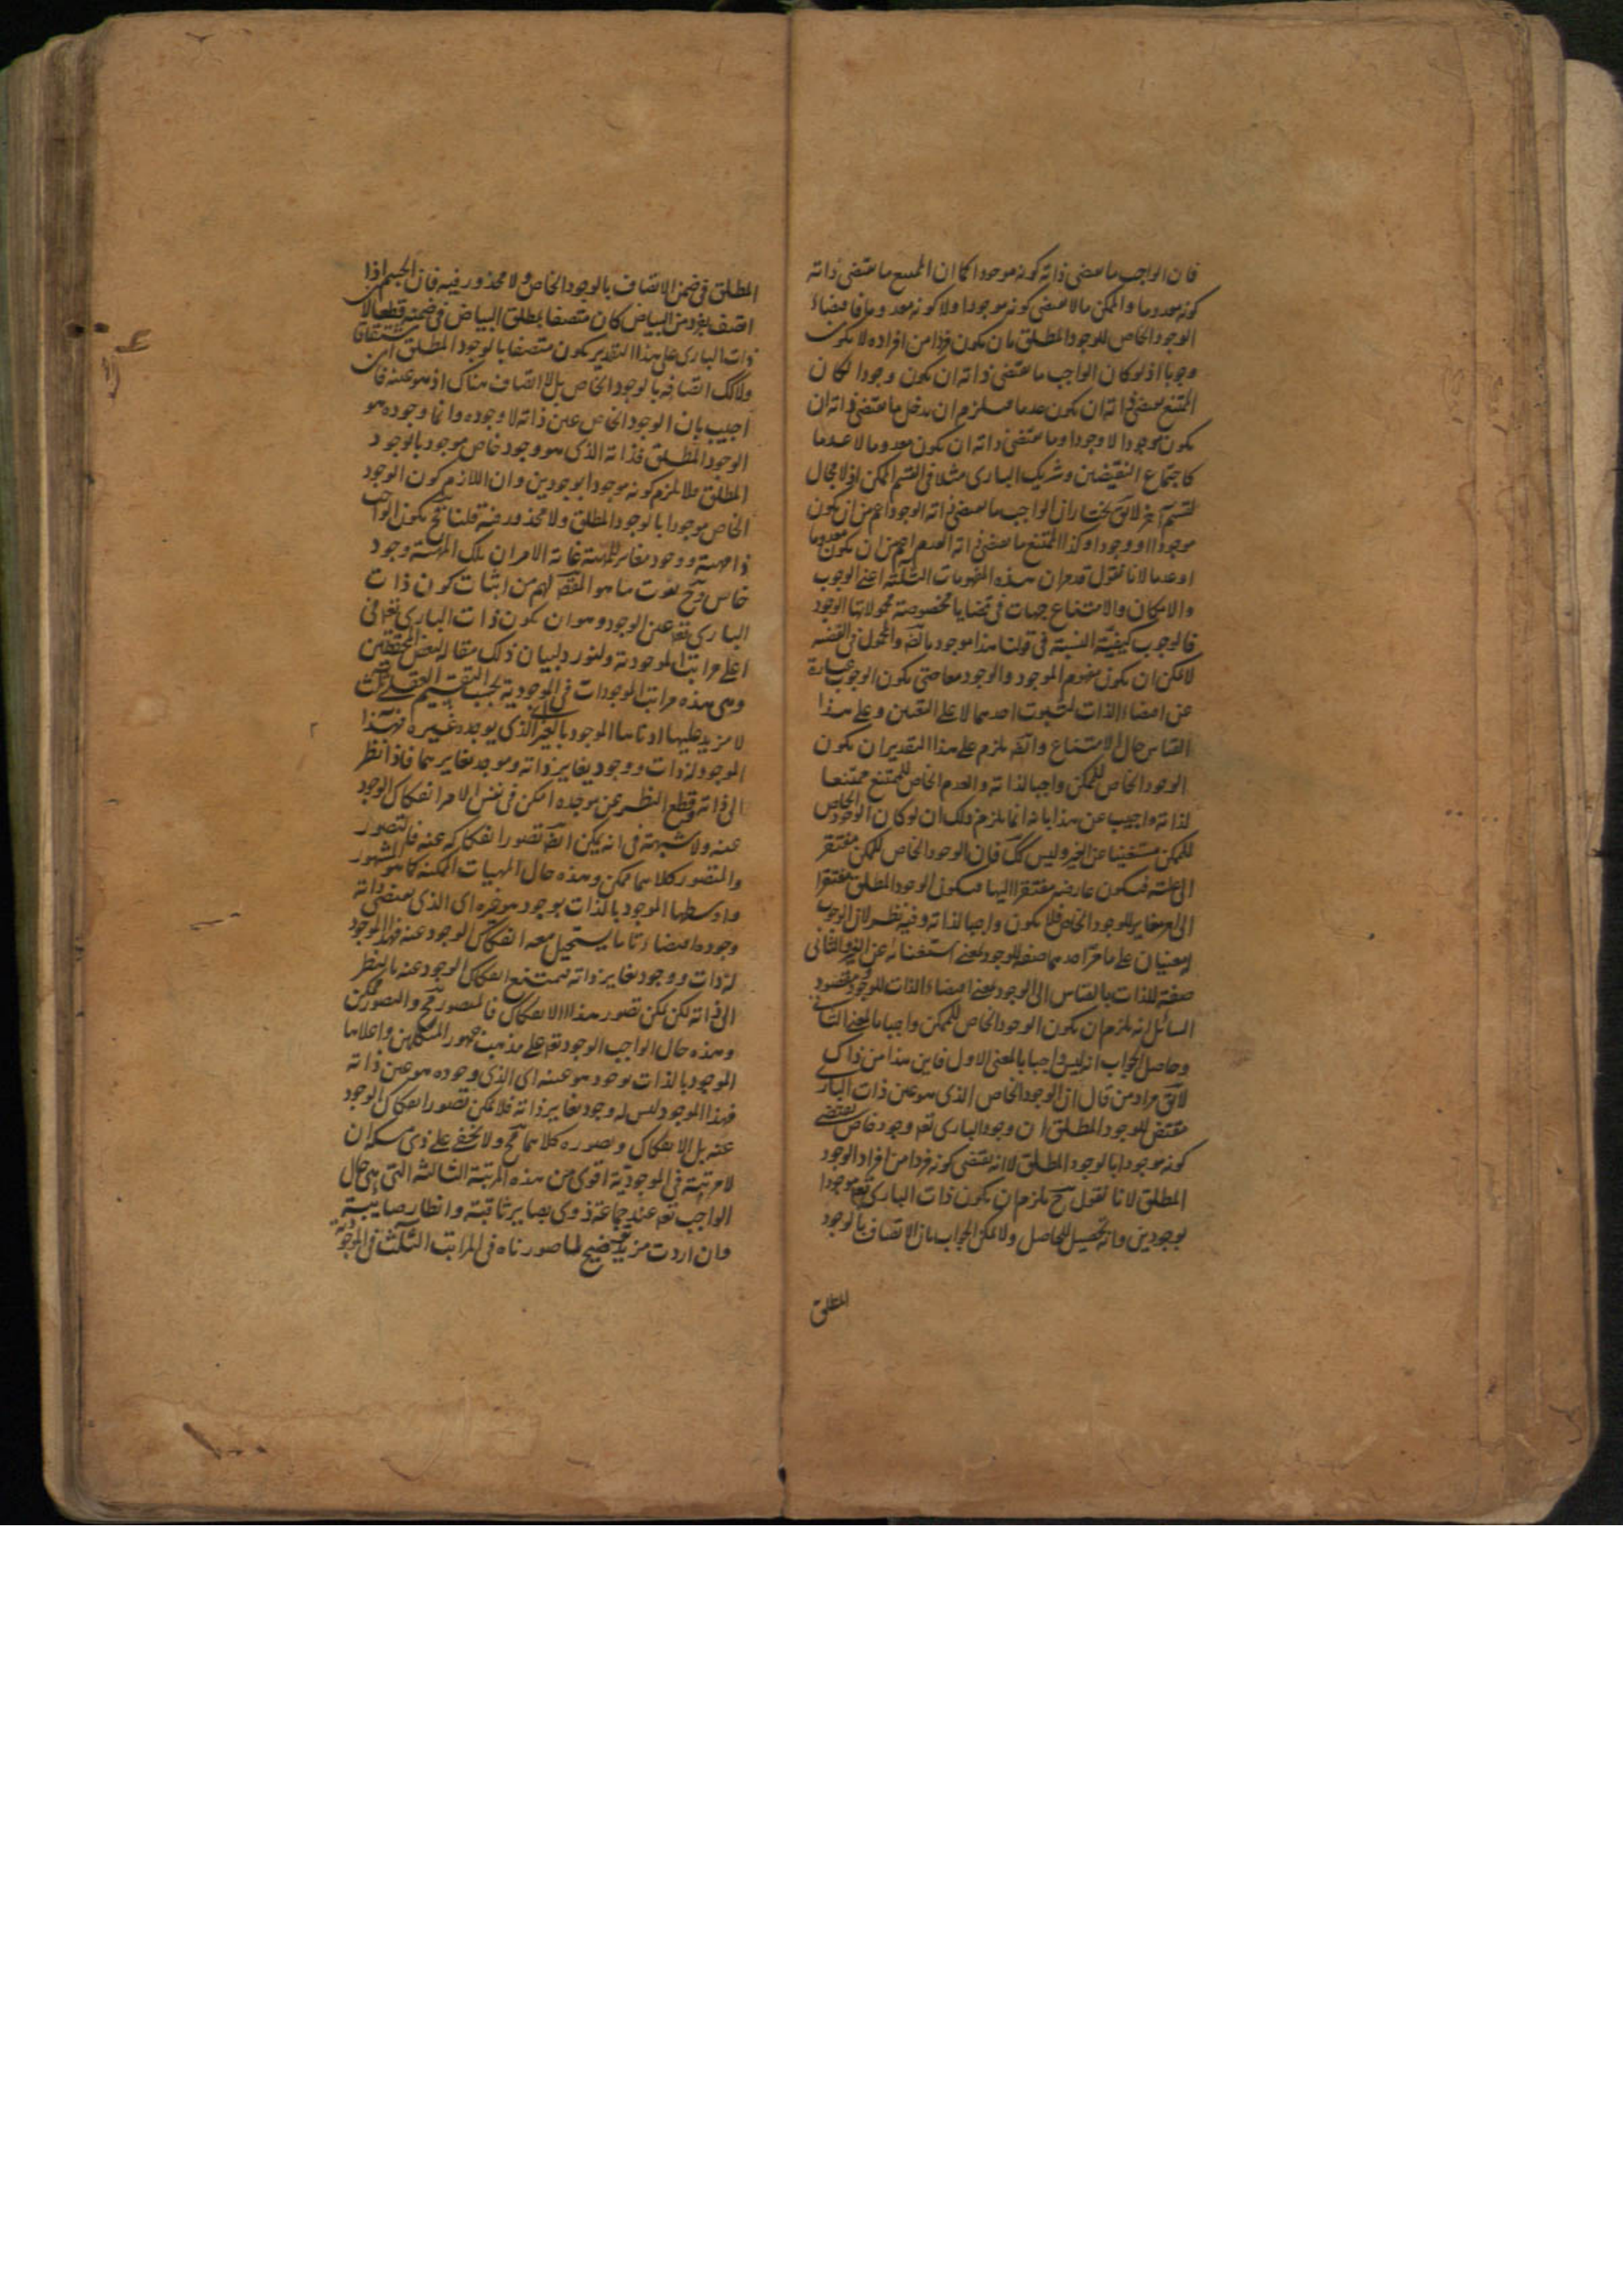 فان الواجب ما يقتضى ذاته كونه موجودا كما ان الممتنع ما يقتضى ذاته
كونه معدوما والممكن ما لا يقتضى كونه موجودا ولا كونه معدوما فاقتضاء
الوجود الخاص للوجود المطلق بان يكون فردا من افراده لا يكون
وجوبا اذ لو كان الواجب ما يقتضى ذاته ان يكون وجودا لكان
الممتنع يقتضى ذاته ان يكون عدما فيلزم ان يدخل ما يقتضى ذاته ان
يكون موجودا لا وجودا وما يقتضى ذاته ان يكون معدوما لا عدما
كاجتماع النقيضين وشريك البارى مثلا فى القسم الممكن اذ لا مجال
لقسم آخر لا يق يختار ان الواجب ما يقتضى ذاته الوجود اعم من ان يكون
موجودا او وجودا وكذا الممتنع ما يقتضى ذاته العدم اعم من ان يكون معدوما
او عدما لانا نقول قد مر ان هذه المفهومات الثلثة اعنى الوجوب
والامكان والامتناع جهات فى قضايا مخصوصة محمولاتها الوجود
فالوجوب كيفية النسبة فى قولنا هذا موجود بالضر والمحمول فى القضية
لا يمكن ان يكون مفهوم الموجود والوجود معا حتى يكون الوجوب عبارة
عن اقتضاء الذات لثبوت احدهما لا على التعيين وعلى هذا
القياس حال الامتناع وايضا يلزم على هذا التقدير ان يكون
الوجود الخاص للممكن واجبا لذاته والعدم الخاص للممتنع ممتنعا
لذاته واجيب عن هذا بانه انما يلزم ذلك ان لو كان الوجود الخاص
للممكن مستغنيا عن الغير وليس كك فان الوجود الخاص للممكن مفتقر
الى علته فيكون عارضه مفتقرا اليها فيكون الوجود المطلق مفتقرا
الى امر مغاير للوجود الخاص فلا يكون واجبا لذاته وفيه نظر لان الوجوب
له معنيان على ما مر احدهما صفة للوجود بمعنى استغنائه عن الغير والثانى
صفة للذات بالقياس الى الوجود بمعنى اقتضاء الذات للوجود ومقصود
السائل انه يلزم ان يكون الوجود الخاص للممكن واجبا بالمعنى الثانى
وحاصل الجواب انه ليس واجبا بالمعنى الاول فاين هذا من ذاك
لا يق مراد من قال ان الوجود الخاص الذى هو عين ذات البارى
مقتضى للوجود المطلق ان وجود البارى تعم وجود خاص يقتضى
كونه موجودا بالوجود المطلق لا انه يقتضى كونه فردا من افراد الوجود
المطلق لانا نقول ح يلزم ان يكون ذات البارى تعم موجودا
بوجودين وانه تحصيل للحاصل ولا يمكن الجواب بان الاتصاف بالوجود
المطلق
المطلق فى ضمن الاتصاف بالوجود الخاص ولا محذور فيه فان الجسم اذا
اتصف بفرد من البياض كان متصفا بمطلق البياض فى ضمنه قطعا لان
ذات البارى على هذا التقدير يكون متصفا بالوجود المطلق اشتقاقا
ولا كك اتصافه بالوجود الخاص بل لا اتصاف هناك اذ هو عينه فان
اجيب بان الوجود الخاص عين ذاته لا وجوده وانما وجوده هو
الوجود المطلق فذاته الذى هو وجود خاص موجود بالوجود
المطلق فلا يلزم كونه موجودا بوجودين وان اللازم كون الوجود
الخاص موجودا بالوجود المطلق ولا محذور فيه قلنا فح يكون الواجب
ذا مهية ووجود مغاير للمهية غاية الامر ان تلك المهية وجود
خاص وح يفوت ما هو المقصد لهم من اثبات كون ذات
البارى تعم عين الوجود وهو ان يكون ذات البارى تعالى
اعلى مراتب الموجودية ولنورد لبيان ذلك مقالة لبعض المحققين
وهى هذه مراتب الموجودات فى الموجودية بحسب التقسيم العقلى ثلث
لا مزيد عليها ادناها الموجود بالغير اى الذى يوجده غيره فهذا
الموجود له ذات ووجود يغاير ذاته وموجد يغايرهما فاذا نظر
الى ذاته وقطع النظر عن موجده امكن فى نفس الامر انفكاك الوجود
عنه ولا شبهة فى انه يمكن ايضا تصور انفكاكه عنه فالتصور
والمتصور كلاهما ممكن وهذه حال المهيات الممكنة كما هو المشهور
واوسطها الموجود بالذات بوجود هو غيره اى الذى يقتضى ذاته
وجوده اقتضاء تاما يستحيل معه انفكاك الوجود عنه فهذا الموجود
له ذات ووجود يغاير ذاته فيمتنع انفكاك الوجود عنه بالنظر
الى ذاته لكن يمكن تصور هذا الانفكاك فالمتصور مح والتصور ممكن
وهذه حال الواجب الوجود تعم على مذهب جمهور المتكلمين واعلاها
الموجود بالذات بوجود هو عينه اى الذى وجوده هو عين ذاته
فهذا الموجود ليس له وجود يغاير ذاته فلا يمكن تصور انفكاك الوجود
عنه بل الانفكاك وتصوره كلاهما مح ولا يخفى على ذى مسكة ان
لا مرتبة فى الموجودية اقوى من هذه المرتبة الثالثة التى هى حال
الواجب تعم عند جماعة ذوى بصاير ثاقبة وانظار صايبة
وان اردت مزيد توضيح لما صورناه فى المراتب الثلث فى الموجودية